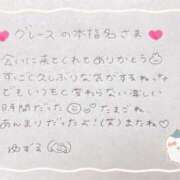 グレースの本指名さま
会いに来てくれてありがとう
すっごく久しぶりな気がするねっ
でもいつもと変わらない楽しい
時間だった
あんまりだったよ!(笑)またね♡
ゆずる